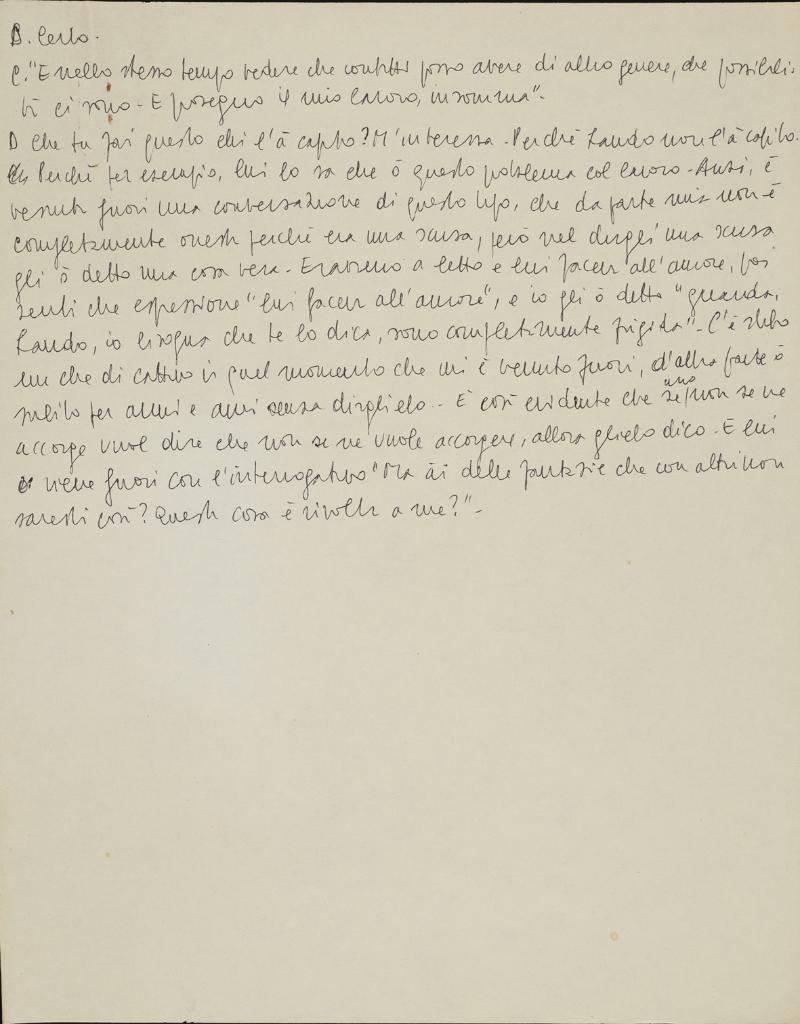 D. Certo.
C. "E nello stesso tempo vedere che contatti posso avere di altro genere, che possibili-
tà ci sono - E proseguo il mio lavoro, insomma"-
D Che tu fai questo chi l'à capito? M'interessa - Perché Lando non l'à capito.
C Perché per esempio, lui lo sa che ò questo problema col lavoro - Anzi, è
venuta fuori una conversazione di questo tipo, che da parte mia non è
completamente onesta perché era una scusa, però nel dirgli una scusa
gli ò detto una cosa vera - Eravamo a letto e lui faceva all'amore, poi
senti che espressione "lui faceva all'amore", e io gli ò detto "guarda,
Lando, io bisogna che te lo dica, sono completamente frigida" - C'è stato
un che di cattivo in quel momento che mi è venuto fuori, d'altra parte ò
subito per anni e anni senza dirglielo - E così evidente che se uno non se ne
accorge vuol dire che non se ne vuole accorgere, allora glielo dico - E lui
viene fuori con l'interrogativo "Ma ài delle fantasie che con altri non
saresti così? Questa cosa è rivolta a me?"-